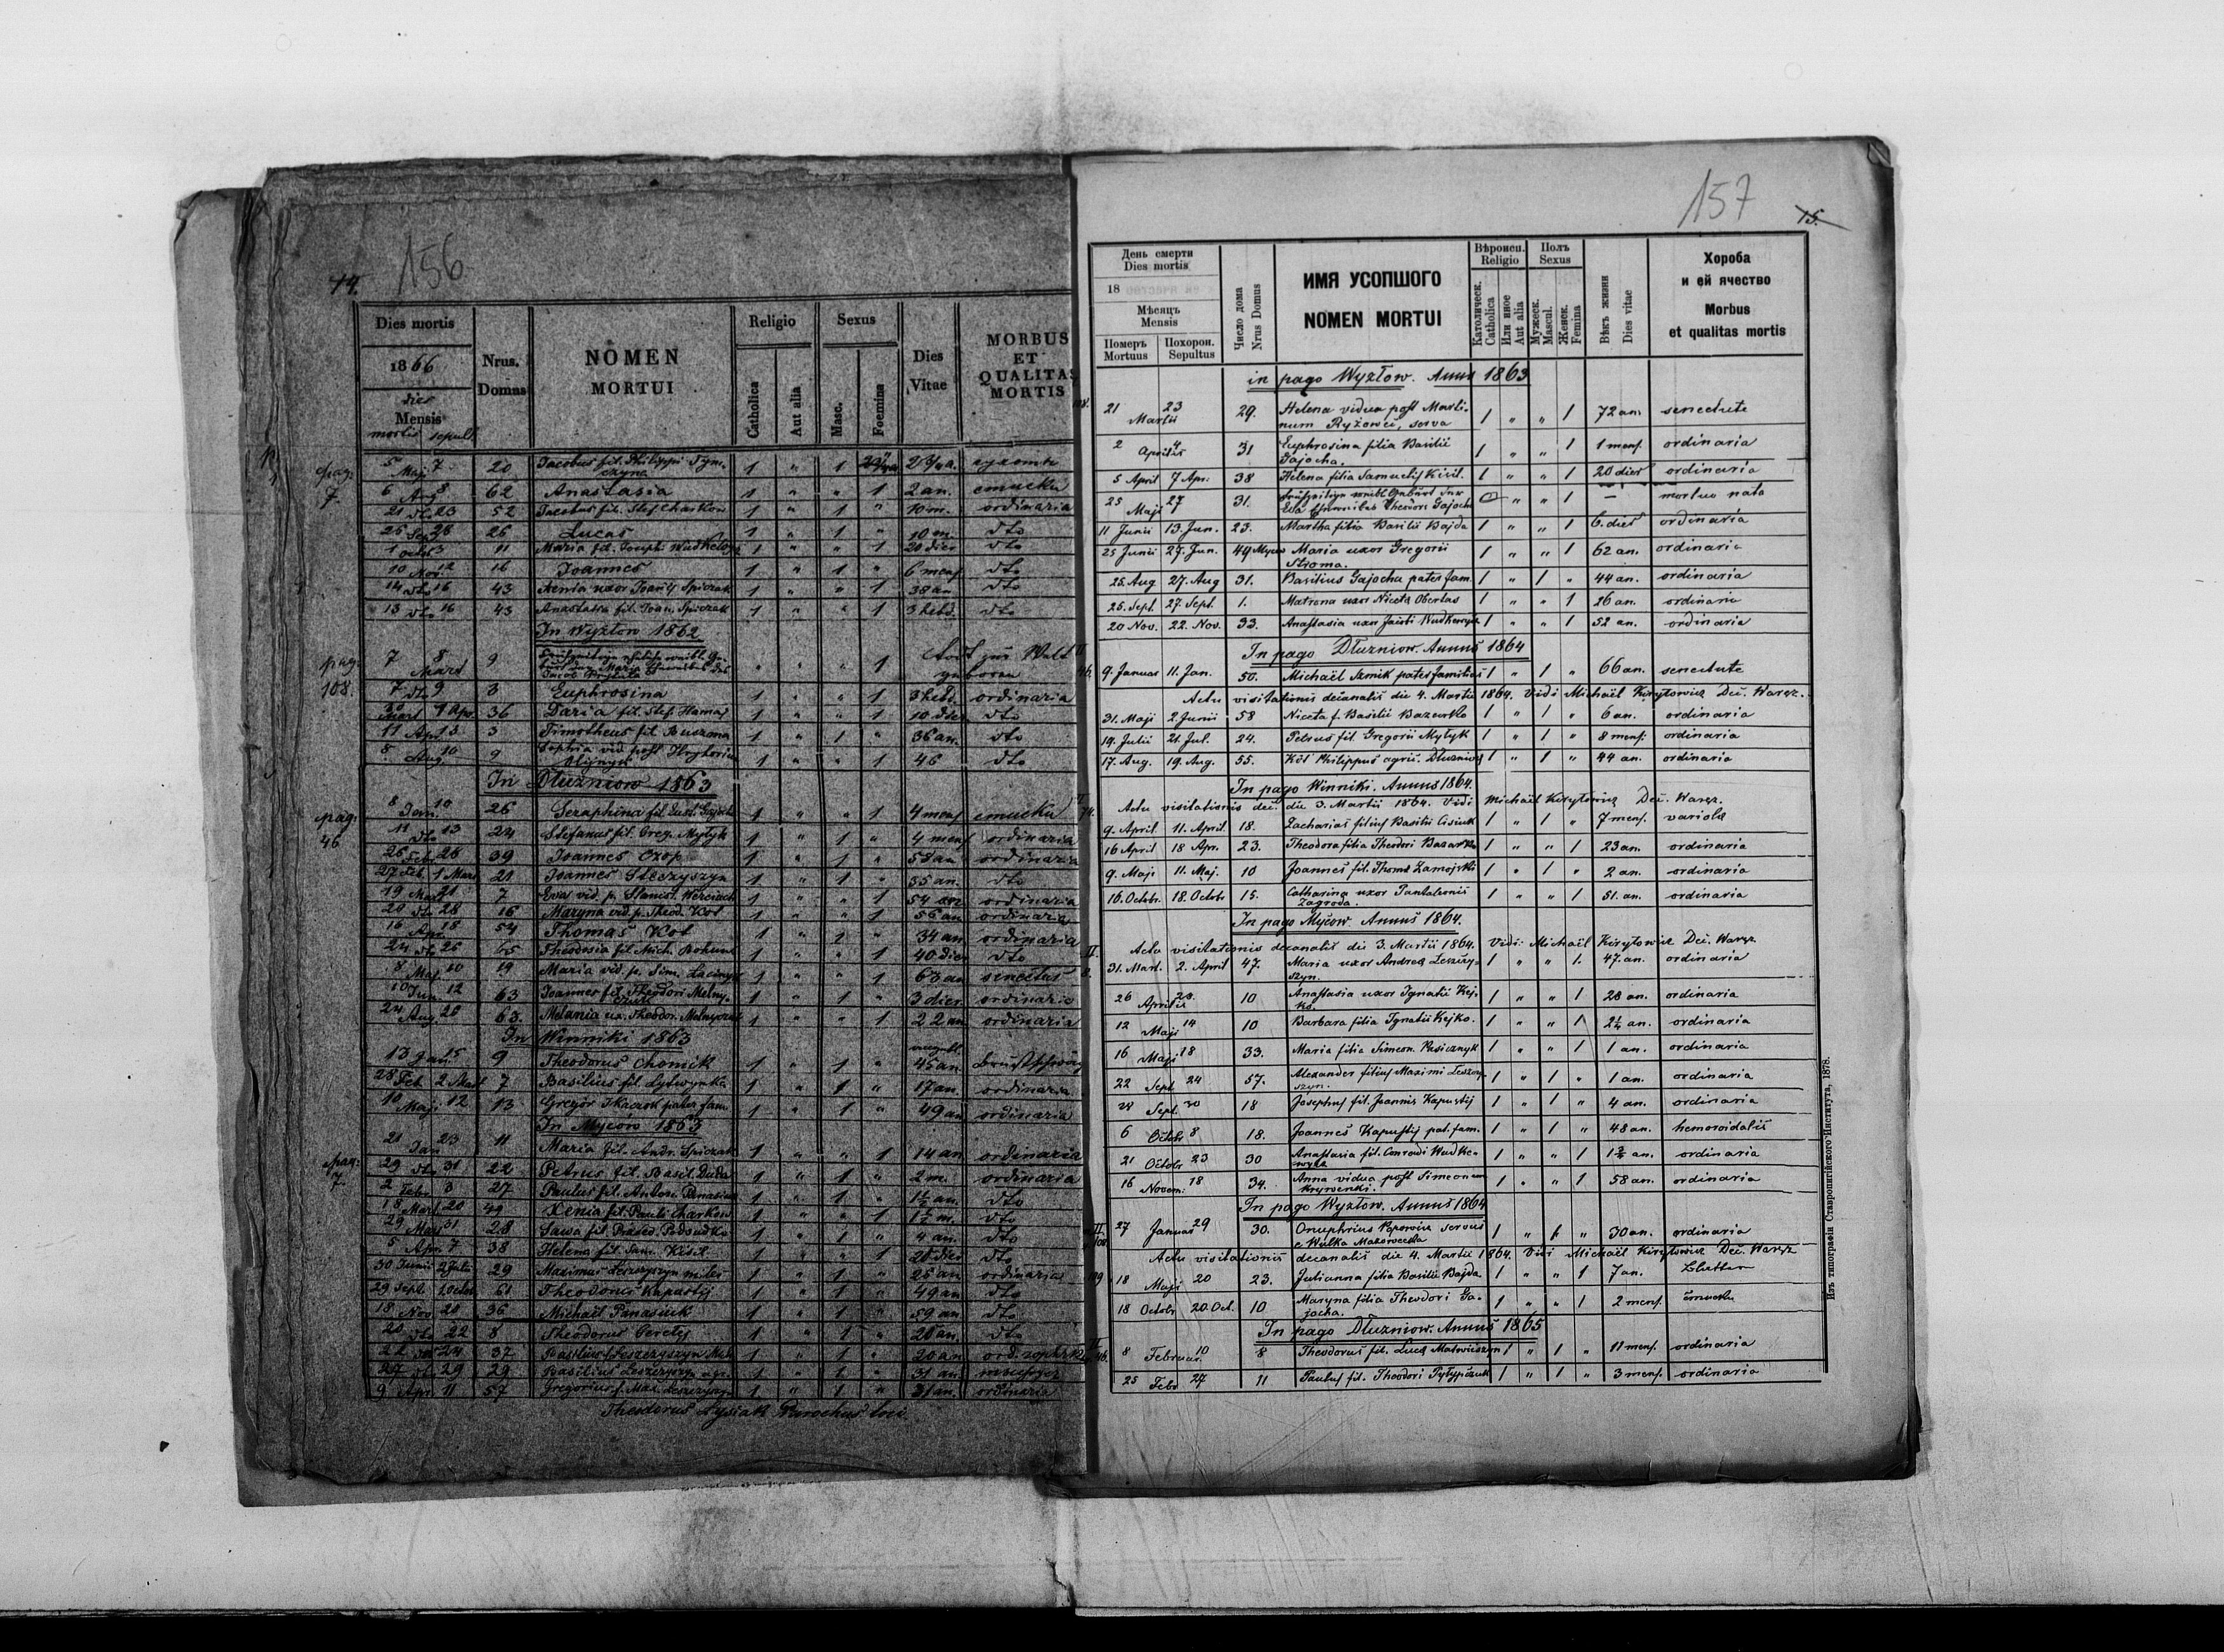 14. 156
Dies mortis
1866
dies
Mensis
mortis sepult.
Nrus. Domus
NOMEN
MORTUI
Religio
Catholica
Aut alia
Sexus
Masc.
Foemina
Dies
Vitae
MORBUS
ET
QUALITAS
MORTIS
pag. 7
5 Maj 7 20 Jacobus fil. Philippi Tym-
czyna 1 " 1 2 3/4 a.
6 Aug 8 62 Anastasia 1 " " 1 2 an. cmucku
21 dto 23 52 Jacobus fil. Stef. Charkow 1 " 1 " 10 m. ordinaria
26 Sep 28 26 Lucas 1 " 1 " 10 m. dto
1 octob 3 11 Maria fil. Joseph. 1 " " 1 20 dier dto
10 Nov. 12 16 Joannes 1 " 1 " 6 mens dto
14 dto 16 43 Xenia uxor Joan. Spiczak 1 " " 1 38 an dto
13 dto 16 43 Anastasia fil. Joan. Spiczak 1 " " 1 3 hebd. dto
In Wyżłow 1862
pag. 108.
7 Mart 8 9 " " " 1 todt zur Welt
geboren
7 dto 9 3 Euphrosina 1 " " 1 3 hebd. ordinaria
30 Mart 1 Apr. 36 Daria fil. Stef. Hamaj 1 " " 1 10 dier dto
11 Apr 13 3 Timotheus fil. Buszona 1 " 1 " 36 an. dto
8 Aug 10 9 Sophia vid. post
Olijnyk 1 " " 1 46 dto
In Dłużniow 1863
pag. 46
8 Jan. 10 26 Seraphina fil. 1 " " 1 4 mens cmucku
11 dto 13 24 Stefanus fil. Greg. Mytyk 1 " 1 " 4 mens ordinaria
26 Feb 28 39 Joannes Czop 1 " 1 " 58 an ordinaria
27 Feb. 1 Mart 21 Joannes Steczyszyn 1 " 1 " 55 an. dto
19 Mart 21 7 Eva vid. p. 1 " " 1 54 an ordinaria
26 dto 28 16 Maryna vid. p. Theod. Kot 1 " " 1 56 an ordinaria
16 Apr 18 54 Thomas Kot 1 " 1 " 34 an ordinaria
24 dto 26 65 Theodosia fil. Mich. Bohun 1 " " 1 40 dier dto
8 Maj 10 19 Maria vid. p. Sim. 1 " " 1 63 an senectus
10 Jun. 12 63 Joannes fil. Theodori Melny-
czuk 1 " 1 " 3 dier ordinaria
24 Aug 26 63. Melania ux. Theodor. Melnyczuk 1 " " 1 22 an ordinaria
In Winniki 1863
13 Jan 15 9 Theodorus Chomik 1 " 1 " 45 an
28 Feb 2 Mart 7 Basilius fil. 1 " 1 " 17 an. ordinaria
10 Maji 12 13 Gregor Tkaczok pater fam. 1 " 1 " 49 an ordinaria
In Mycow 1863
pag. 7.
21 Jan 23 11 Maria fil. Andr. Spiczak 1 " " 1 14 an ordinaria
29 dto 31 22 Petrus fil. Basil. Duda 1 " 1 " 2 m. ordinaria
2 Febr 3 27 Paulus fil. Anton. Panasiuk 1 " 1 " 1 1/2 an. dto
18 Mart 20 49 Xenia fil. Pauli Charkow 1 " " 1 1 1/2 m. dto
29 Mart 31 28 Sawa fil. 1 " 1 " 4 an. dto
5 Apr 7 38 Helena fil. Sam. Kisil. 1 " " 1 20 dier dto
30 Junii 2 Julii 29 Maximus Leszczyszyn miles 1 " 1 " 25 an ordinaria
29 Sept 1 Octob 61 Theodorus Kapustij 1 " 1 " 49 an dto
18 Nov. 20 36 Michaël Panasiuk 1 " 1 " 59 an dto
20 dto 22 8 Theodorus 1 " 1 " 20 an. dto
22 24 37 Basilius Leszczyszyn 1 " 1 " 20 an
27 29 29 Basilius Leszczyszyn agr. 1 " 1 " 31 an.
9 Apr 11 57 Gregorius f. Max. Leszczyszyn 1 " 1 " ordinaria
Theodorus Lysiak Parochus loci.
157 15.
День смерти
Dies mortis
18
Мѣсяцъ
Mensis
Померъ
Mortuus
Похорон.
Sepultus
Число дома
Nrus Domus
ИМЯ УСОПШОГО
NOMEN MORTUI
Вѣроисп.
Religio
Католическ.
Catholica
Или иное
Aut alia
Полъ
Sexus
Мужеск.
Mascul.
Женск.
Femina
Вѣкъ жизни
Dies vitae
Хороба
и ей ячество
Morbus
et qualitas mortis
in pago Wyżłow. Annus 1863
108. 21 Martii 23 29. Helena vidua post Marti-
num Ryżowei, serva 1 " " 1 72 an. senectute
2 Aprilis 4 31 Euphrosina filia Basilii
Gajocha. 1 " " 1 1 mens. ordinaria
5 April 7 Apr. 38 Helena filia Samuelis Kisil. 1 " " 1 20 dies ordinaria
25 Maji 27 31. Theodori Gajocha " " 1 — mortuo nata
11 Junii 13 Jun. 23. Martha filia Basilii Bajda 1 " " 1 6. dies ordinaria
25 Junii 27. Jun. 44 Mycow Maria uxor Gregorii
Stroma. 1 " " 1 62 an. ordinaria
25. Aug 27. Aug 31. Basilius Gajocha pater fam. 1 " 1 " 44 an. ordinaria
25. Sept. 27. Sept. 1. Matrona uxor Niceta Obertas 1 " " 1 26 an. ordinaria
20 Nov. 22. Nov. 33. Anastasia uxor 1 " " 1 52 an. ordinaria
In pago Dłużniow. Annus 1864
II 46. 9. Januar 11. Jan. 50. Michaël Szmik pater familias 1 " 1 " 66 an. senectute
Actu visitationis decanalis die 4. Martii 1864. Vidi Michaël Kiryłowicz Dec. Waręz.
31. Maji 2. Junii 58 Niceta f. Basilii Bazurko 1 " 1 " 6 an. ordinaria
19. Julii 21. Jul. 24. Petrus fil. Gregorii Mytyk 1 " 1 " 8 mens. ordinaria
17. Aug. 19. Aug. 55. Kot Philippus agric. Dłużniow 1 " 1 " 44 an. ordinaria
In pago Winniki. Annus 1864.
II 74. Actu visitationis dec. die 3. Martii 1864. Vidi Michaël Kiryłowicz Dec. Waręz.
9. April. 11. April. 18. Zacharias filius Basilii Cisiuk 1 " 1 " 7 mens. variola
16 April 18 Apr. 23. Theodora filia Theodori Bazurko 1 " " 1 23 an. ordinaria
9. Maji 11. Maj. 10 Joannes fil. Thoma Zamojski 1 " 1 " 2 an. ordinaria
16. Octobr. 18. Octobr 15. Catharina uxor Pantaleonis
Zagroda. 1 " " 1 51. an. ordinaria
In pago Mycow. Annus 1864.
II. 8. Actu visitationis decanalis die 3. Martii 1864. Vidi: Michaël Kiryłowicz Dec. Waręz.
31. Mart. 2. April 47. Maria uxor Andrea Leszczy-
szyn. 1 " " 1. 47. an. ordinaria
26 Aprilis 28. 10 Anastasia uxor Ignatii Kej-
ko. 1 " " 1 28 an. ordinaria
12 Maji 14 10 Barbara filia Ignatii Kejko. 1 " " 1 2 1/2 an. ordinaria
16 Maji 18 33. Maria filia Simeon. 1 " " 1 1 an. ordinaria
22 Sept 24 57. Alexander filius Maximi Leszczy-
szyn. 1 " 1 " 1 an. ordinaria
28 Sept 30 18 Josephus fil. Joannis Kapustij 1 " 1 " 4 an. ordinaria
6 Octobr 8 18. Joannes Kapustij pat. fam. 1 " 1 " 48 an. hemoroidalis
21 Octobr 23 30 Anastasia fil. Conradi Wudke-
wycz 1 " " 1 an. ordinaria
16 Novem. 18 34. Anna vidua post Simeonem
Krywenki. 1 " " 1 58 an. ordinaria
In pago Wyżłow. Annus 1864
II 108. 27 Januar 29 30. Onuphrius Paporwicz servus
e Wulka Mazowecka 1 " 1 " 30 an. ordinaria
Actu visitationis decanalis die 4. Martii 1864. Vidi Michaël Kiryłowicz Dec. Waręz
109 18 Maji 20 23. Julianna filia Basilii Bajda 1 " " 1 7 an. Blattern
18 Octobr 20. Oct. 10 Maryna filia Theodori Ga-
jocha. 1 " " 1 2 mens. cmucku
In pago Dłużniow. Annus 1865
II 46. 8 Februar. 10 8 Theodorus fil. Luca 1 " 1 " 11 mens. ordinaria
25 Febr 27 11 Paulus fil. Theodori Pyłypczuk 1 " 1 " 3 mens. ordinaria
Изъ типографіи Ставропигійского Института, 1878.